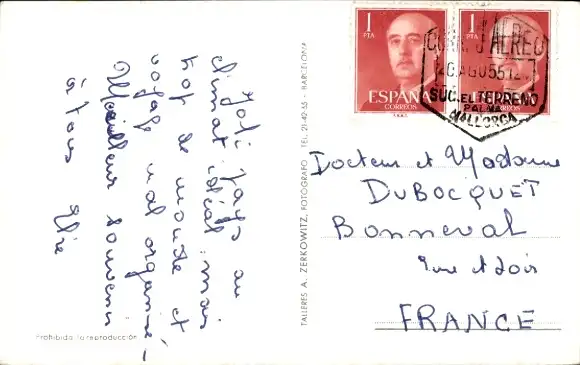 Joli pays au
climat idéal mais
trop de monde et
voyage mal organisé -
Meilleur souvenir
à tous Elie
Prohibida la reproducción
TALLERES A. ZERKOWITZ, FOTÓGRAFO - TEL. 21-42-55 - BARCELONA
1
PTA
ESPAÑA
CORREOS
1
PTA
CORREOS
CORREO AEREO
20 AGO 55 12
SUC. EL TERRENO
PALMA
MALLORCA
Docteur et Madame
DUBOCQUET
Bonneval
Eure et Loir
FRANCE